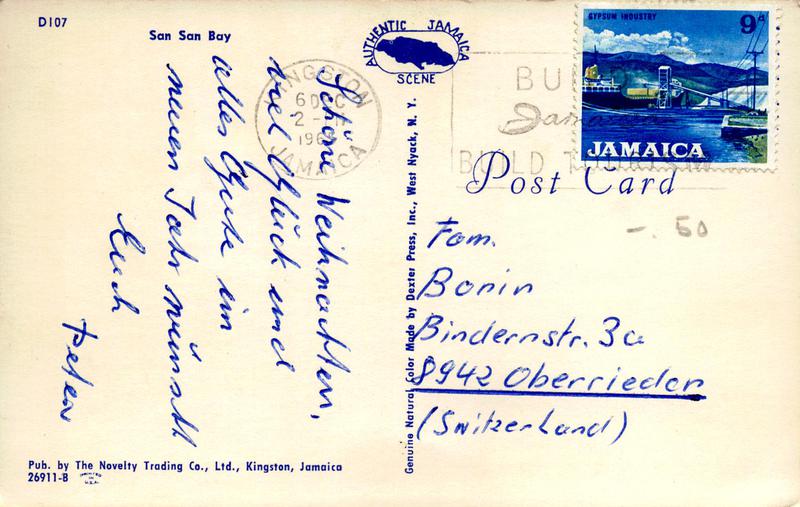 D107
San San Bay
AUTHENTIC JAMAICA
SCENE
KINGSTON
6 DEC
2 -
196
JAMAICA
BU
Jamaica
BUILD
GYPSUM INDUSTRY
9d
JAMAICA
Post Card
Schöne Weihnachten,
viel Glück und
alles Gute im
neuen Jahr wünscht
Euch
Peter
Genuine Natural Color Made by Dexter Press, Inc., West Nyack, N. Y.
-. 50
Fam.
Bonin
Bindernstr. 3a
8942 Oberrieden
(Switzerland)
Pub. by The Novelty Trading Co., Ltd., Kingston, Jamaica
26911-B
PRINTED IN U.S.A.